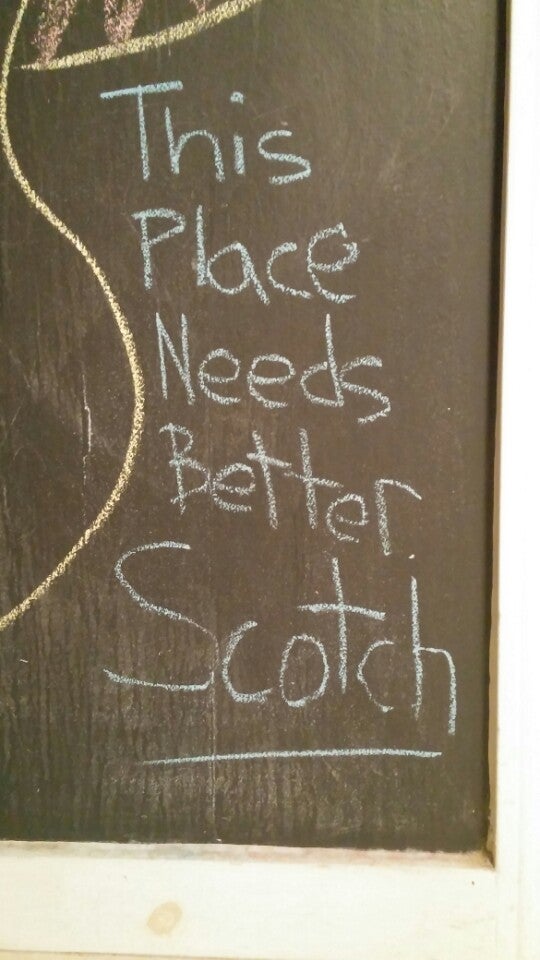 This
Place
Needs
Better
Scotch